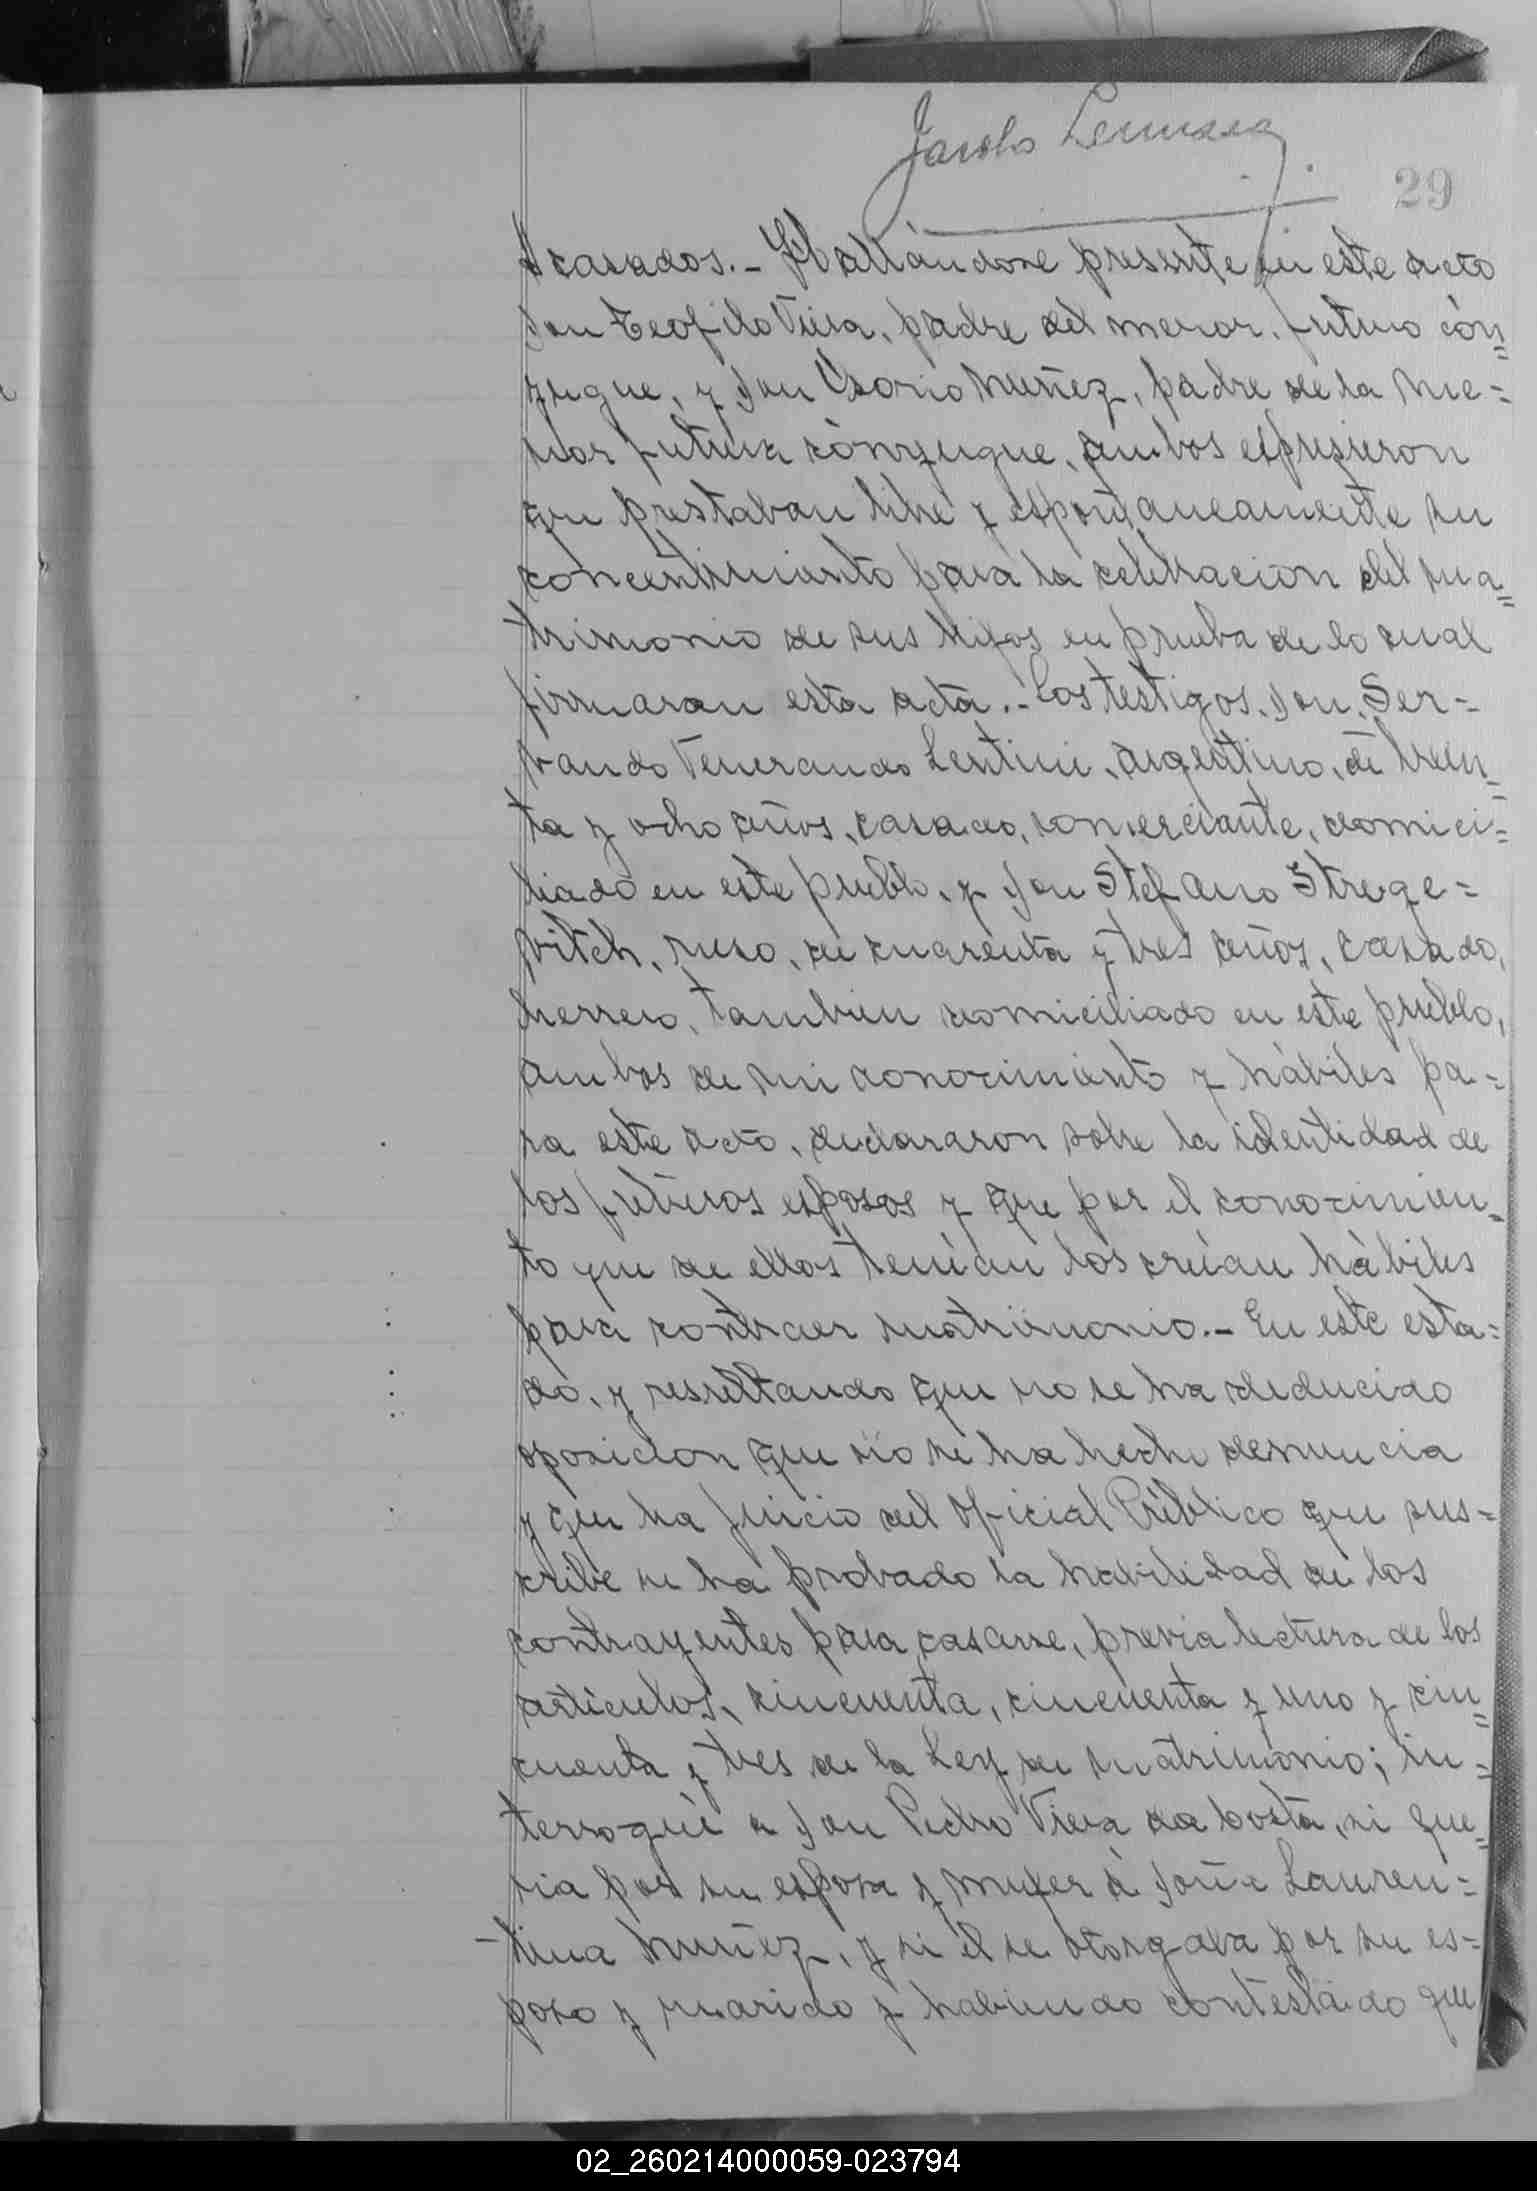 Jacobo
29
casados.- Hallándose presente en este acto
don Teofilo Viera, padre del menor, futuro cón=
yugue, y don Osorio Nuñez, padre de la me=
nor futura cònyugue, ambos expusieron
que prestaban libre y espontaneamente su
concentimiento para la celebracion del ma=
trimonio de sus hijos en prueba de lo cual
firmaran esta acta.- Los testigos, don Ser=
vando Venerando Lentini, argentino, de trein=
ta y ocho años, casado, comerciante, domici=
liado en este pueblo, y don Stefano Struge=
vitch, ruso, de cuarenta y tres años, casado,
herrero, tambien domiciliado en este pueblo,
ambos de mi conocimiento y hábiles pa=
ra este acto, declararon sobre la identidad de
los futuros esposos y que por el conocimien=
to que de ellos tenían los creían hàbiles
para contraer matrimonio.- En este esta=
do, y resultando que no se ha deducido
oposicion que no se ha hecho denuncia
y que ha juicio del Oficial Público que sus=
cribe se ha probado la habilidad de los
contrayentes para casarse, previa lectura de los
artículos, cincuenta, cincuenta y uno y cin=
cuenta y tres de la Ley de matrimonio; in=
terroguè a don Pedro Viera da Costa, si que=
ria por su esposa y mujer à doña Lauren=
tina Nuñez, y si él se otorgaba por su es=
poso y marido y habiendo contestado que
02_260214000059-023794